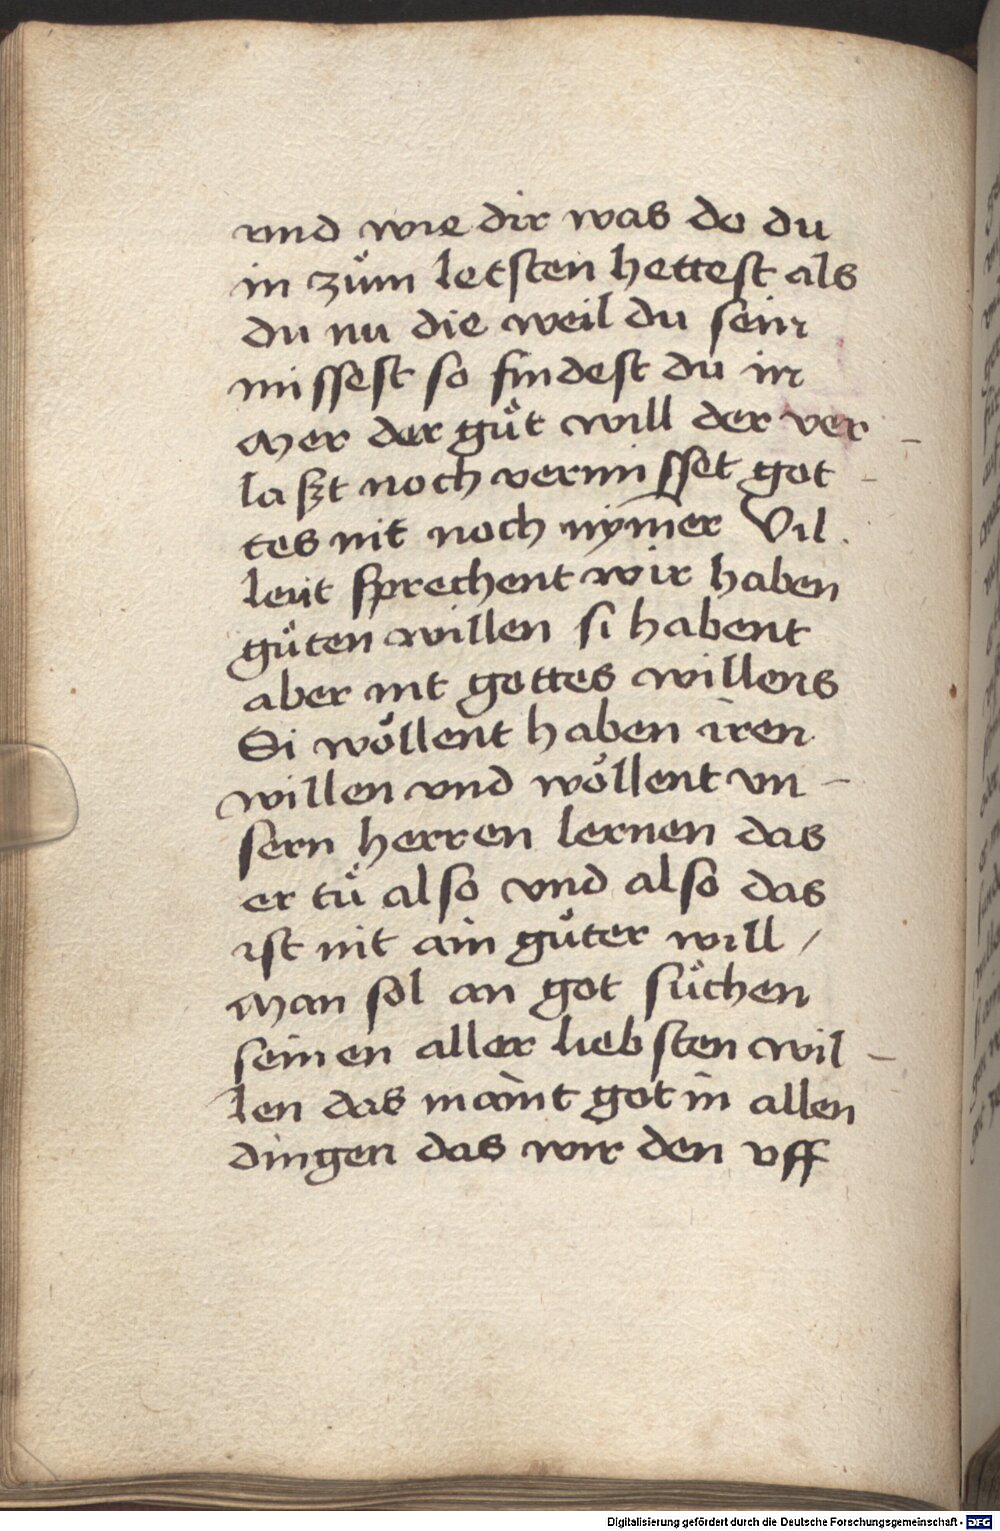 vnd wie dir was do du
in zuͦm letsten hettest als
du nu die weil du sein
missest so findest du in
Mer der guͦt will der ver
laſzt noch vermisset got
tes nit noch nÿmer Vil
leüt sprechent wir haben
guͦten willen si habent
aber nit gottes willens
Si woͤllent haben iren
willen vnd woͤllent vn
sern herren lernen das
er tuͦ also vnd also das
ist nit ain guͦter will /
Man sol an got suͦchen
seinen aller liebsten wil
len das maint got in allen
dingen das wir den vff
Digitalisierung gefördert durch die Deutsche Forschungsgemeinschaft - DFG